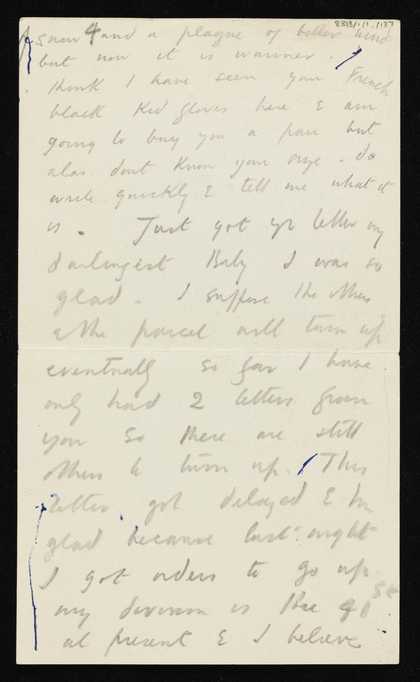 8313/1/1/137
snow 4 and a plague of bitter wind
but now it is warmer. I
think I have seen your French
black Kid gloves here & am
going to buy you a pair but
alas dont know your size - do
write quickly & tell me what it
is. Just got yr letter my
darlingest Baby I was so
glad. I suppose the others
& the parcel will turn up
eventually so far I have
only had 2 letters from
you so there are still
others to turn up. This
letter got delayed & Im
glad because last night
I got orders to go up
my division is the 41st
at present & I believe